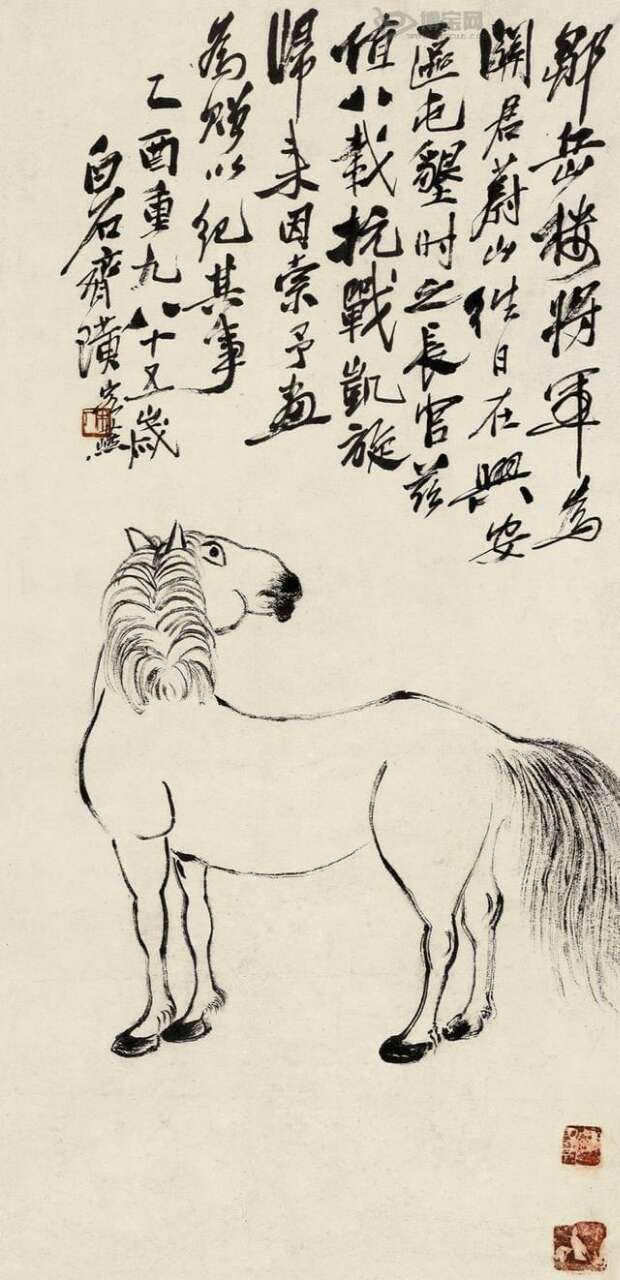 鄒岳楼将軍為
關君蔚山往日在興安
區屯墾时之長官茲
值八載抗戰凱旋
歸来因索予畫
為贈以紀其事
乙酉重九八十五歲
白石齊璜
博宝网